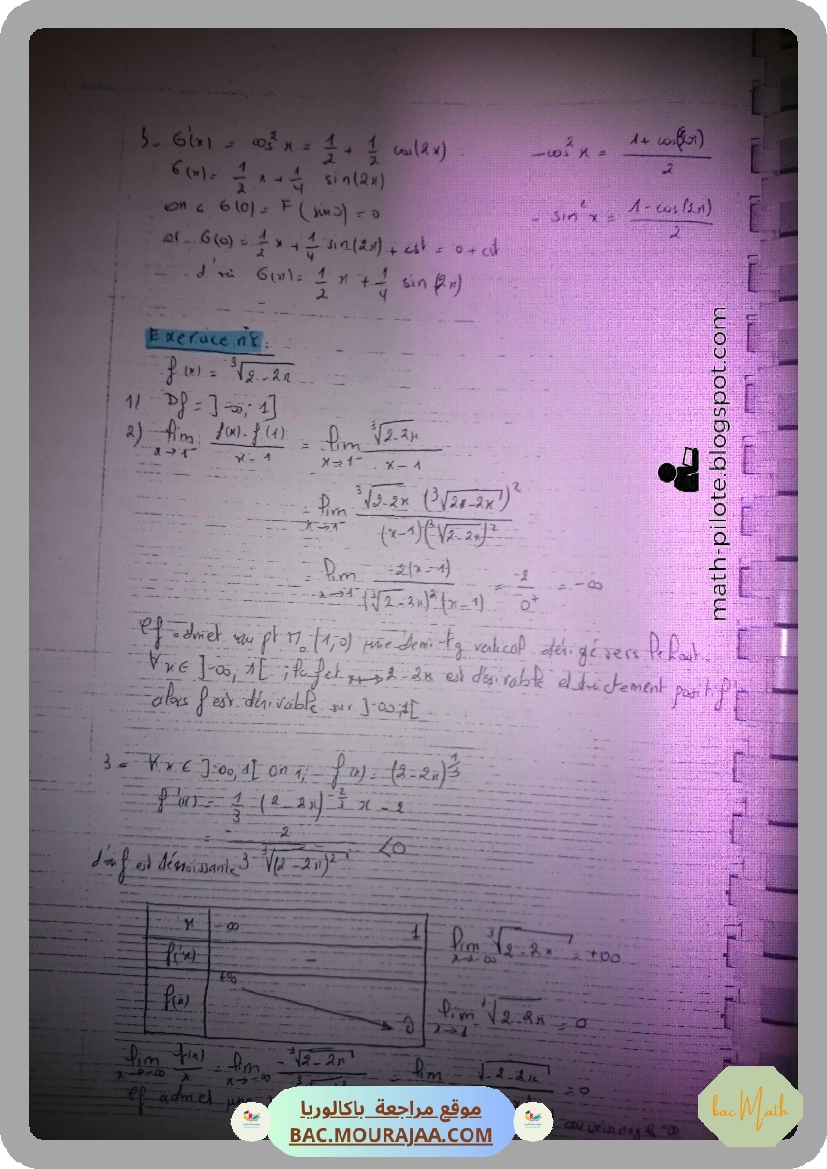 3- G'(x) = cos²x = 1/2 + 1/2 cos(2x)
- cos²x = (1+cos(2x))/2
G(x) = 1/2 x + 1/4 sin(2x)
on a G(0) = F(sin0) = 0
- sin²x = (1-cos(2x))/2
or G(0) = 1/2 x + 1/4 sin(2x) + cst = 0 + cst
d'où G(x) = 1/2 x + 1/4 sin(2x)
Exercice n°8:
f(x) = ³√(2-2x)
1) Df = ]-∞, 1]
2) lim x→1⁻ (f(x)-f(1))/(x-1) = lim x→1⁻ ³√(2-2x)/(x-1)
= lim x→1⁻ ³√(2-2x) (³√(2x-2x))²/((x-1)(³√(2-2x))²)
= lim x→1⁻ -2(x-1)/((³√(2-2x))²(x-1)) = -2/0⁺ = -∞
ℓf admet au pt M₀(1,0) une demi tg vertical dérigé vers le haut.
∀x∈]-∞, 1[ ; la fct x↦2-2x est dérivable et strictement positif
alors f est dérivable sur ]-∞,1[
3- ∀x∈]-∞,1[ on a f(x) = (2-2x)^(1/3)
f'(x) = 1/3 (2-2x)^(-2/3) x -2
= - 2/(3 ³√(2-2x)²) <0
d'où f est décroissante
x -∞ 1
f'(x) -
f(x) +∞ 0
lim x→-∞ ³√(2-2x) = +∞
lim x→1⁻ ³√(2-2x) = 0
lim x→-∞ f(x)/x = lim x→-∞ -³√(2-2x)
= lim = 0
ℓf admet
math-pilote.blogspot.com
موقع مراجعة باكالوريا
BAC.MOURAJAA.COM
bac Math